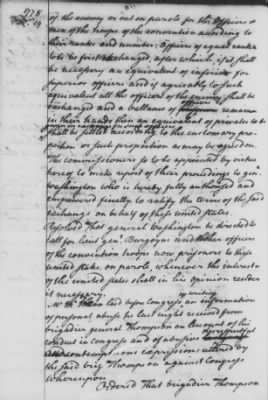 1778
Novr 19
of the enemy or out on parole for the officers &
men of the troops of the convention according to
their ranks and number: Officers of equal ranks
to be first exchanged, after which, if it shall
be necessary an equivalent of inferior for
superior officers and if agreeably to such
equivalent all the officers of the enemy shall be
exchanged and a ballance of officers remains
in their hands then an equivalent of privates to be
shall be settled according to the customary pro-
portion or such proportion as may be agreed on.
The commissioners so to be appointed by virtue
hereof to make report of their proceedings to genl
Washington who is hereby fully authorised and
empowered finally to ratify the terms of the said
exchange on behalf of these united states.
Resolved That general Washington be directed to
call for lieut genl Burgoyne and other officers
of the convention troops now prisoners to these
united states on parole, whenever the interest
of the united states shall in his opinion render
it necessary.
laid before congress an information
of personal abuse he last night received from
brigadier general Thompson on account of his
conduct in congress and of abusive disrespectful
and contemptuous expressions uttered by
the said brig Thompson against congress
Whereupon
Ordered That brigadier Thompson